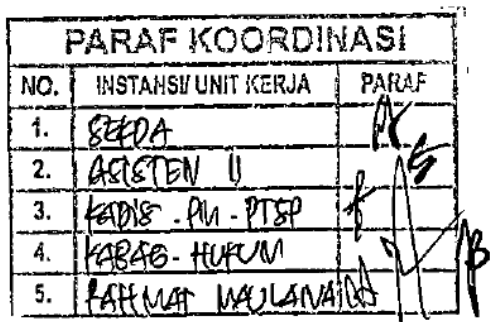 PARAF KOORDINASI
NO. INSTANSI/ UNIT KERJA PARAF
1. SEKDA
2. ASISTEN II
3. KADIS - PM - PTSP
4. KABAG - HUKUM
5. RAHMAT MAULANA